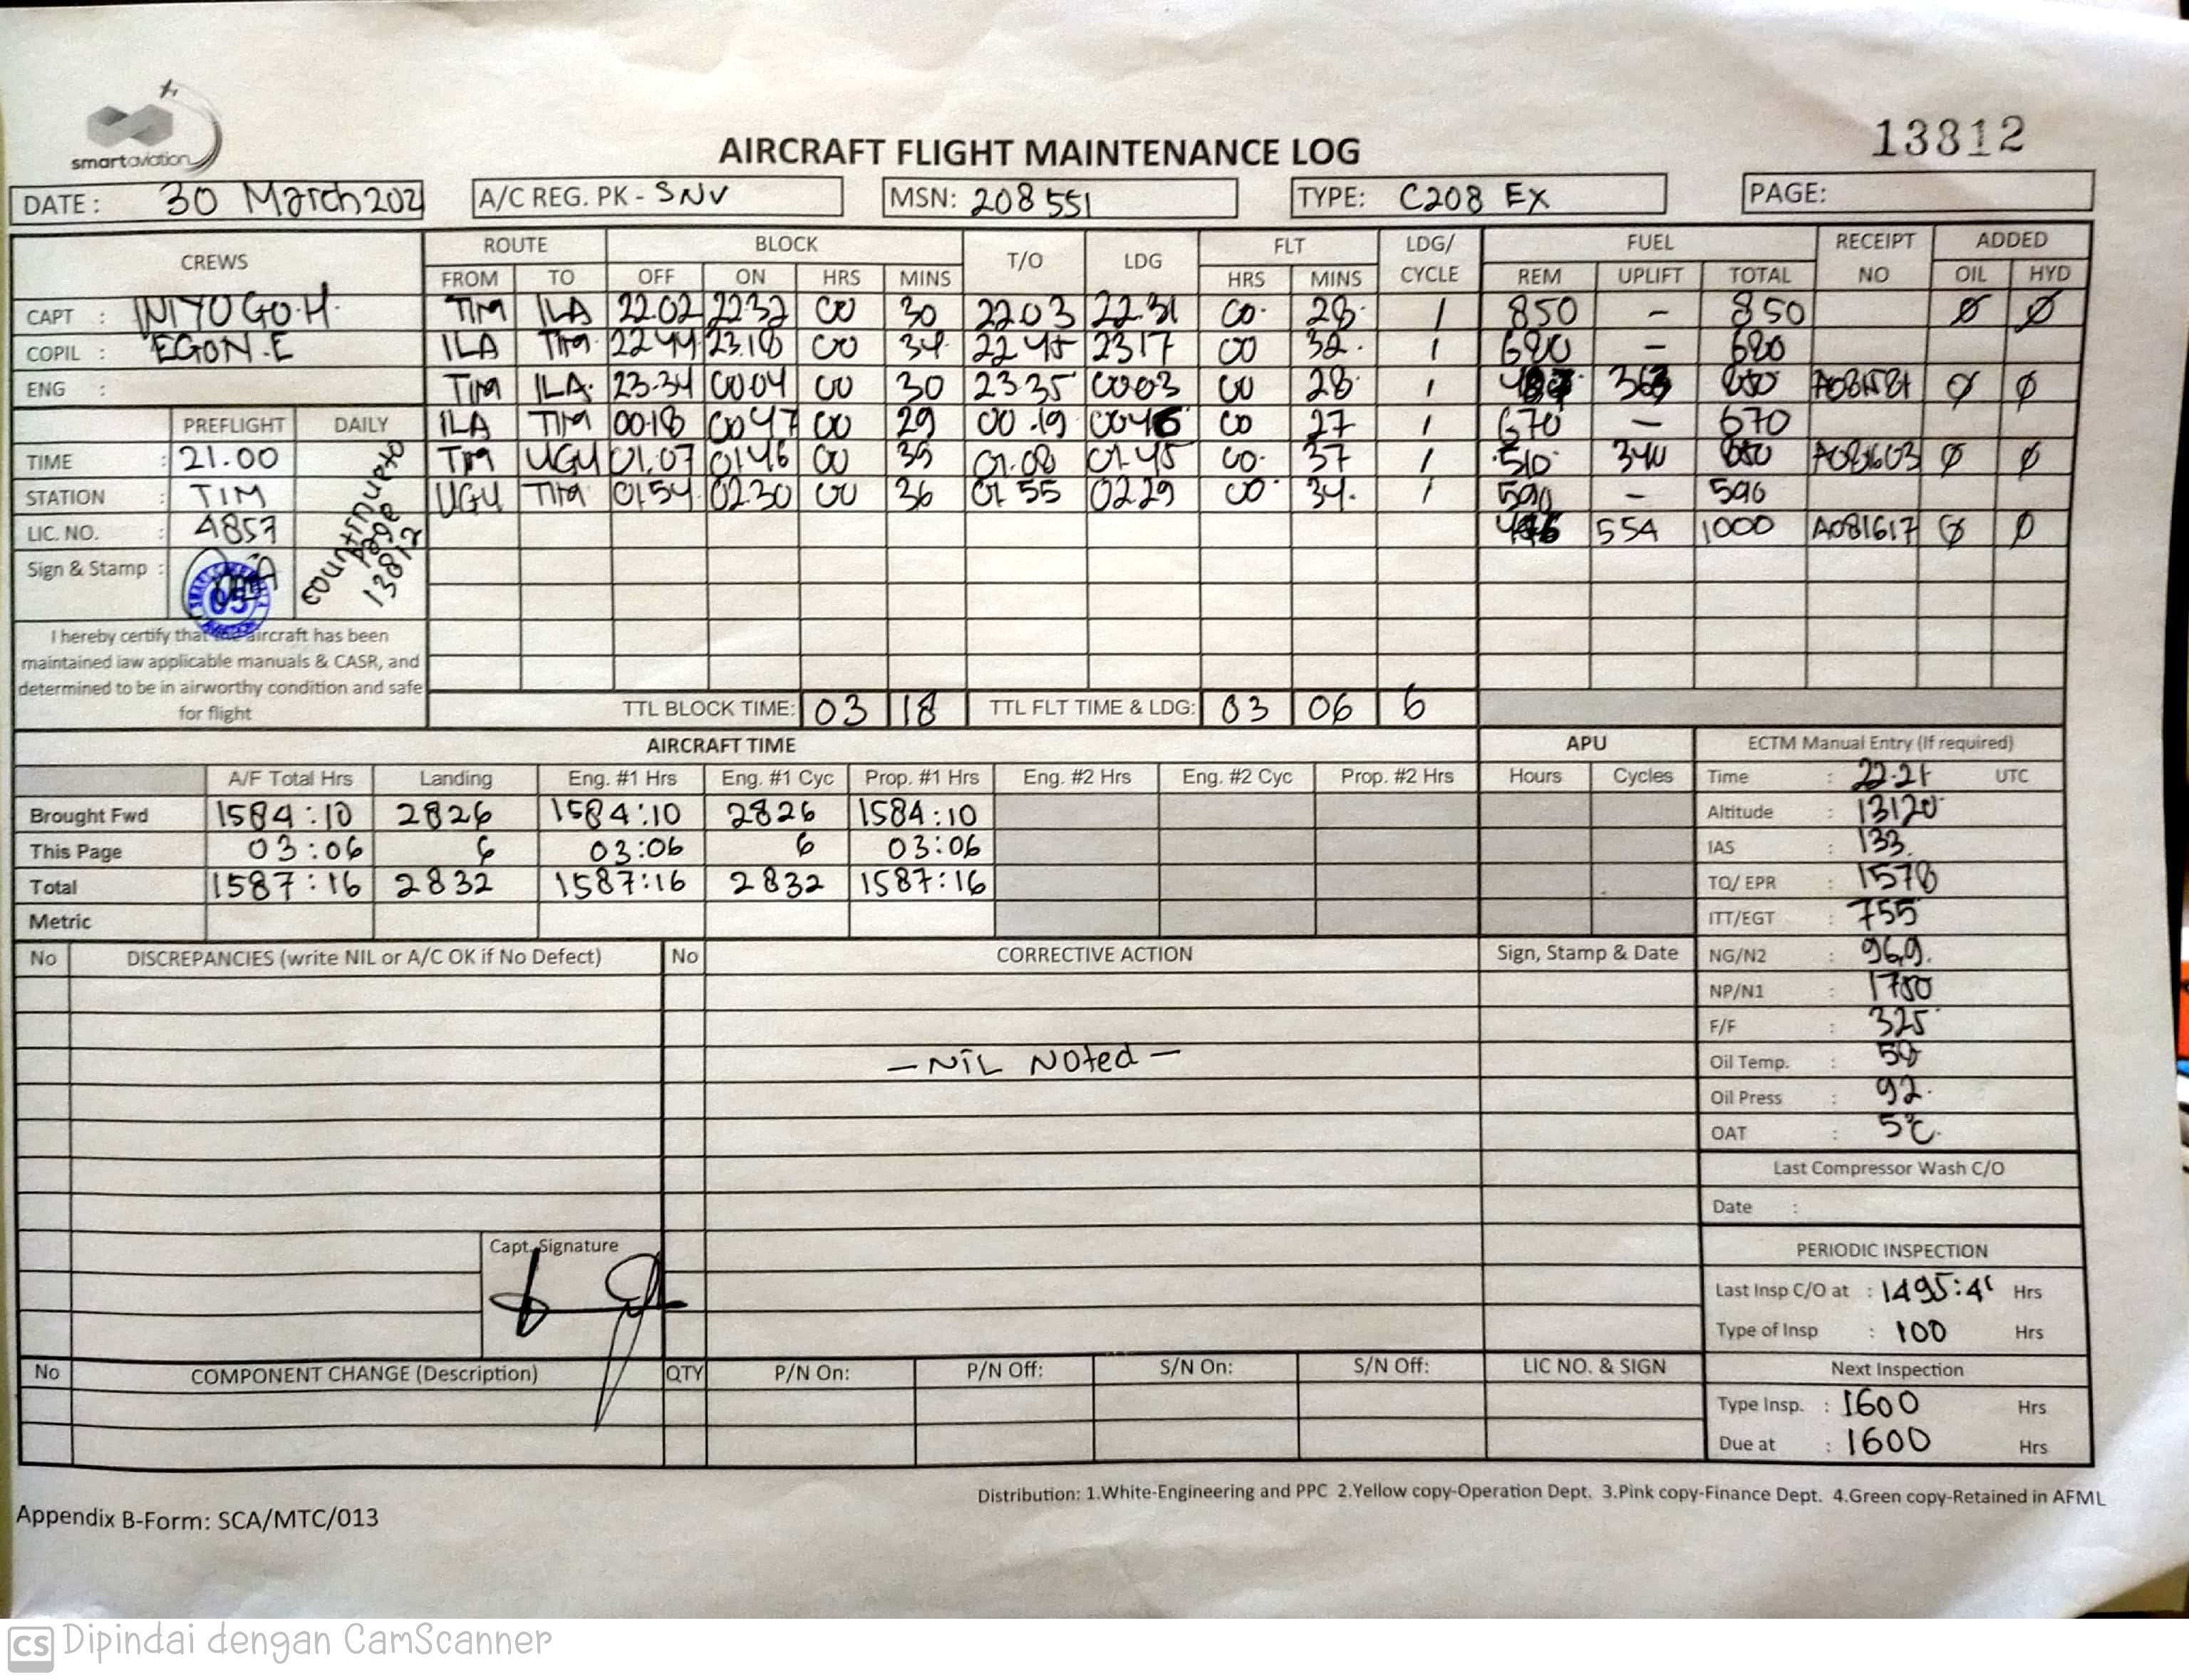 smartaviation
13812
AIRCRAFT FLIGHT MAINTENANCE LOG
DATE : 30 March 202 A/C REG. PK - SNV MSN: 208 551 TYPE: C208 EX PAGE:
CREWS ROUTE BLOCK T/O LDG FLT LDG/ FUEL RECEIPT ADDED
FROM TO OFF ON HRS MINS HRS MINS CYCLE REM UPLIFT TOTAL NO OIL HYD
CAPT : INIYOGO.H. TIM ILA 22.02 22.32 00 30 2203 22.31 00. 28. 1 850 - 850 Ø Ø
COPIL : EGON.E ILA TIM. 2244 23.18 00 34. 2245 2317 00 32. 1 680 - 680
ENG : TIM ILA. 23.34 0004 00 30 23.35 0003 00 28. 1 363 A081581 Ø Ø
PREFLIGHT DAILY ILA TIM 00.18 0047 00 29 00.19 0046 00 27 1 670 - 670
TIME : 21.00 TIM UGU 01.07 0146 00 39 01.08 01.45 00. 37 1 510 340 850 A081603 Ø Ø
STATION : TIM UGU TIM 0154 0230 00 36 01 55 0229 00. 34. 1 590 - 590
LIC. NO. : 4857 554 1000 A081617 Ø Ø
Sign & Stamp : 05
page
13812
I hereby certify that the aircraft has been
maintained iaw applicable manuals & CASR, and
determined to be in airworthy condition and safe
for flight
TTL BLOCK TIME: 03 18 TTL FLT TIME & LDG: 03 06 6
AIRCRAFT TIME APU ECTM Manual Entry (If required)
A/F Total Hrs Landing Eng. #1 Hrs Eng. #1 Cyc Prop. #1 Hrs Eng. #2 Hrs Eng. #2 Cyc Prop. #2 Hrs Hours Cycles Time : 22.21 UTC
Brought Fwd 1584:10 2826 1584:10 2826 1584:10 Altitude : 13120
This Page 03:06 6 03:06 6 03:06 IAS : 133.
Total 1587:16 2832 1587:16 2832 1587:16 TQ/ EPR : 1578
Metric ITT/EGT : 755
No DISCREPANCIES (write NIL or A/C OK if No Defect) No CORRECTIVE ACTION Sign, Stamp & Date NG/N2 : 96,9.
NP/N1 : 1780
F/F : 325
- NIL Noted - Oil Temp. :
Oil Press : 92.
OAT : 5°C.
Last Compressor Wash C/O
Date :
Capt. Signature
PERIODIC INSPECTION
Last Insp C/O at : Hrs
Type of Insp : 100 Hrs
No COMPONENT CHANGE (Description) QTY P/N On: P/N Off: S/N On: S/N Off: LIC NO. & SIGN Next Inspection
Type Insp. : 1600 Hrs
Due at : 1600 Hrs
Distribution: 1.White-Engineering and PPC 2.Yellow copy-Operation Dept. 3.Pink copy-Finance Dept. 4.Green copy-Retained in AFML
Appendix B-Form: SCA/MTC/013
CS Dipindai dengan CamScanner